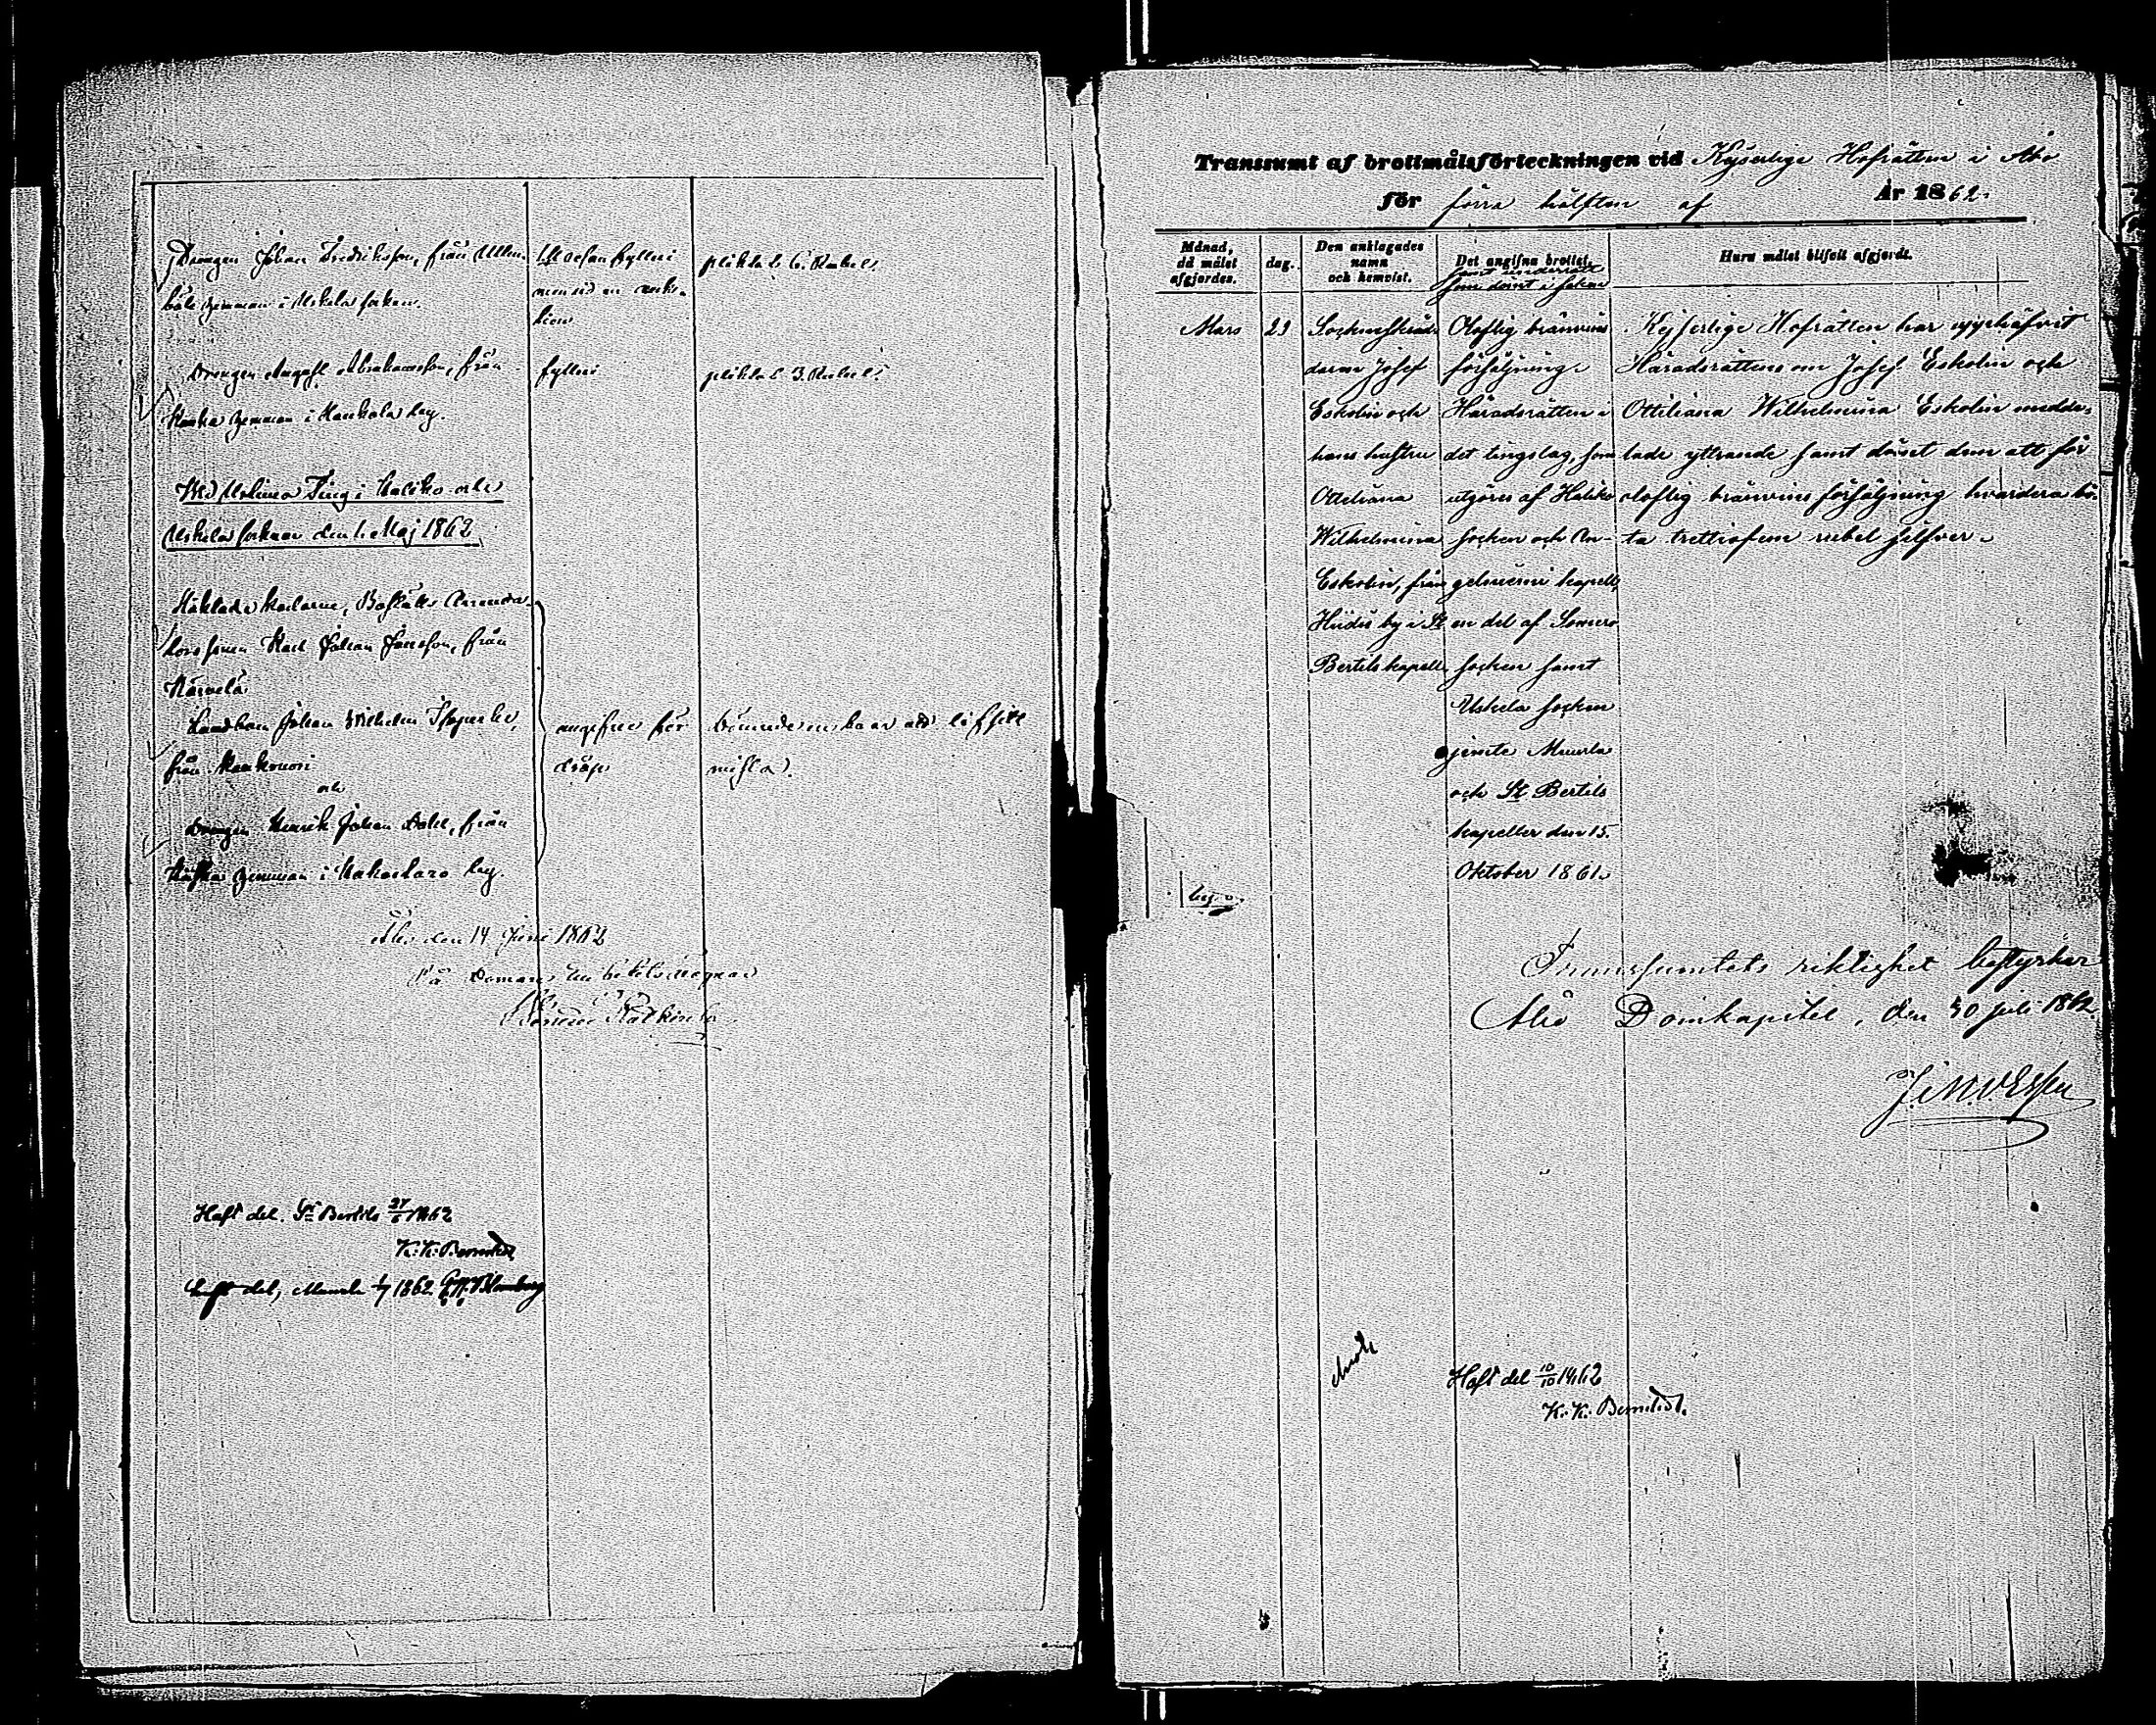 Drengen Johan Fredriksson, från Ullen-
böle hemman i Uskela socken.
fylleri
plikta 6. Rubel.
Drengen August Abrahamsson, från
hemman i Haukala by.
fylleri
plikta 3. Rubel.
Ting i Haliko och
Uskela socknar den 1. Maj 1862
Häktade karlarne,
sonen Karl Johan Jansson, från
Kärvelä
Landbon Johan Wilhelm
från
och
Drengen Henrik Johan från
hemman i by.
angifne för
dråp
lifvet
mista.
den 14 Juni 1862
På Domare Embetets vägnar
Haft del. St Bertils 27/6 1862
K: K: Bernstedt
Haft del, Muurla 1/7 1862. Blomberg
Transsumt af brottmålsförteckningen vid Kejserliga Hofrätten i Åbo
för förra hälften af År 1862.
Månad,
då målet
afgjordes.
dag.
Den anklagades
namn
och hemvist.
Det angifna brottet,
samt underrätt
som dömt i saken
Huru målet blifvit afgjordt.
Mars
23
Sockneskräd-
daren Josef
Eskolin och
hans hustru
Ottiliana
Wilhelmina
Eskolin, från
Hiidis by i St
Bertils kapell
Oloflig bränvins
försäljning.
Häradsrätten i
det tingslag, som
utgöres af Haliko
socken och An-
gelniemi kapell,
en del af Somero
socken samt
Uskela socken
jemte Muurla
och St Bertils
kapeller den 15.
Oktober 1861.
Kejserliga Hofrätten har upphäfvit
Häradsrättens om Josef Eskolin och
Ottiliana Wilhelmina Eskolin medde-
lade yttrande samt dömt dem att för
oloflig bränvins försäljning hvardera bö-
ta trettiofem rubel silfver.
Transsumtets riktighet bestyrker
Åbo Domkapitel, den 30 juli 1862.
Haft del 10/10 1862
K: K: Bernstedt.